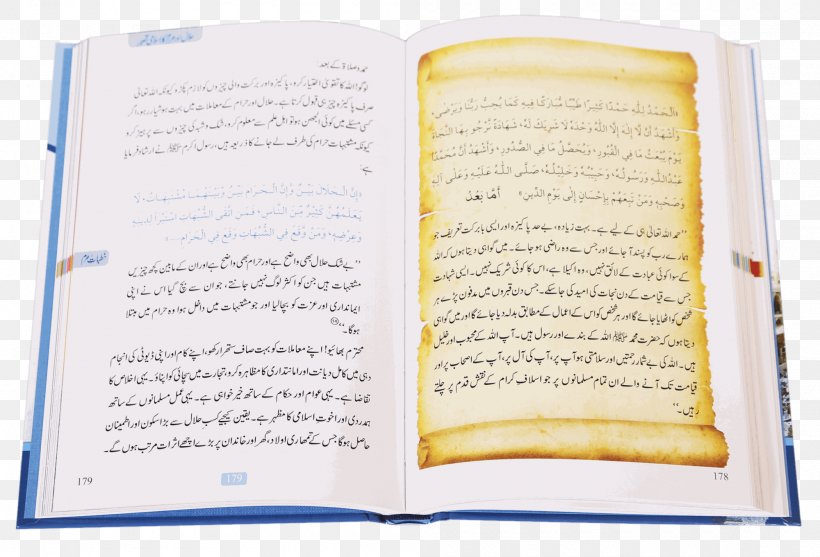 «الْحَمْدُ لِلّٰهِ حَمْدًا كَثِيْرًا طَيِّبًا مُبَارَكًا فِيهِ كَمَا يُحِبُّ رَبُّنَا وَيَرْضٰى،
وَأَشْهَدُ أَنْ لَّا إِلٰهَ إِلَّا اللّٰهُ وَحْدَهُ لَا شَرِيْكَ لَهُ، شَهَادَةً نَّرْجُو بِهَا النَّجَاةَ
يَوْمَ يُبْعَثُ مَا فِي الْقُبُورِ، وَيُحَصَّلُ مَا فِي الصُّدُورِ، وَأَشْهَدُ أَنَّ مُحَمَّدًا
عَبْدُاللّٰهِ وَرَسُولُهُ، وَحَبِيْبُهُ وَخَلِيْلُهُ، صَلَّى اللّٰهُ عَلَيْهِ وَعَلٰى آلِهِ
وَصَحْبِهِ وَمَنْ تَبِعَهُمْ بِإِحْسَانٍ إِلٰى يَوْمِ الدِّينِ» أَمَّا بَعْدُ
”حمد اللہ تعالیٰ ہی کے لیے ہے۔ بہت زیادہ، بے حد پاکیزہ اور ایسی بابرکت تعریف جو
ہمارے رب کو پسند آ جائے اور جس سے وہ راضی ہو جائے۔ میں گواہی دیتا ہوں کہ اللہ
کے سوا کوئی عبادت کے لائق نہیں، وہ اکیلا ہے، اس کا کوئی شریک نہیں۔ ایسی شہادت
جس سے قیامت کے دن نجات کی امید کی جا سکے۔ جس دن قبروں میں مدفون پڑے ہر
شخص کو اٹھایا جائے گا اور ہر شخص کو اس کے اعمال کے مطابق بدلہ دیا جائے گا اور میں گواہی
دیتا ہوں کہ حضرت محمد ﷺ اللہ کے بندے اور رسول ہیں۔ آپ اللہ کے محبوب اور خلیل
ہیں۔ اللہ کی بے شمار رحمتیں اور سلامتی ہو آپ پر، آپ کی آل پر، آپ کے اصحاب پر اور
قیامت تک آنے والے ان تمام مسلمانوں پر جو اسلاف کرام کے نقش قدم پر چلتے
رہیں۔“
178
حمد و صلاۃ کے بعد:
لوگو! اللہ کا تقویٰ اختیار کرو، پاکیزہ اور برکت والی چیزوں کو لازم پکڑو کیونکہ اللہ تعالیٰ
صرف پاکیزہ چیز ہی قبول کرتا ہے۔ حلال اور حرام کے معاملات میں بہت ہوشیار رہو، اگر
کسی مسئلے میں کوئی الجھن ہو تو اہل علم سے معلوم کرو، شک و شبہ کی چیزوں سے پرہیز کرو
کیونکہ مشتبہات حرام کی طرف لے جانے کا ذریعہ ہیں، رسول اکرم ﷺ نے ارشاد فرمایا
ہے:
«إِنَّ الْحَلَالَ بَيِّنٌ وَّإِنَّ الْحَرَامَ بَيِّنٌ وَبَيْنَهُمَا مُشْتَبِهَاتٌ،
لَا يَعْلَمُهُنَّ كَثِيْرٌ مِّنَ النَّاسِ، فَمَنِ اتَّقَى الشُّبُهَاتِ اسْتَبْرَأَ لِدِينِهِ
وَعِرْضِهِ، وَمَنْ وَّقَعَ فِي الشُّبُهَاتِ وَقَعَ فِي الْحَرَامِ...»
”بے شک حلال بھی واضح ہے اور حرام بھی واضح ہے اور ان کے مابین کچھ چیزیں
مشتبہات ہیں جن کو اکثر لوگ نہیں جانتے، جو ان سے بچ گیا اس نے اپنی
ایمانداری اور عزت کو بچا لیا اور جو مشتبہات میں داخل ہوا وہ حرام میں مبتلا
ہوگا۔“
محترم بھائیو! اپنے معاملات کو بہت صاف ستھرا رکھو، اپنے کام اور اپنی ڈیوٹی کی انجام
دہی میں کامل دیانت اور امانتداری کا مظاہرہ کرو، تجارت میں سچائی کو اپناؤ۔ یہی اخلاص کا
تقاضا ہے۔ یہی عوام اور حکام کے ساتھ خیر خواہی ہے۔ یہی عمل مسلمانوں کے ساتھ
ہمدردی اور اخوت اسلامی کا مظہر ہے۔ یقین کیجیے کسب حلال سے بڑا سکون اور اطمینان
حاصل ہوگا جس کے تمھاری اولاد، گھر اور خاندان پر بڑے اچھے اثرات مرتب ہوں گے۔
179
179
خطبات حرم